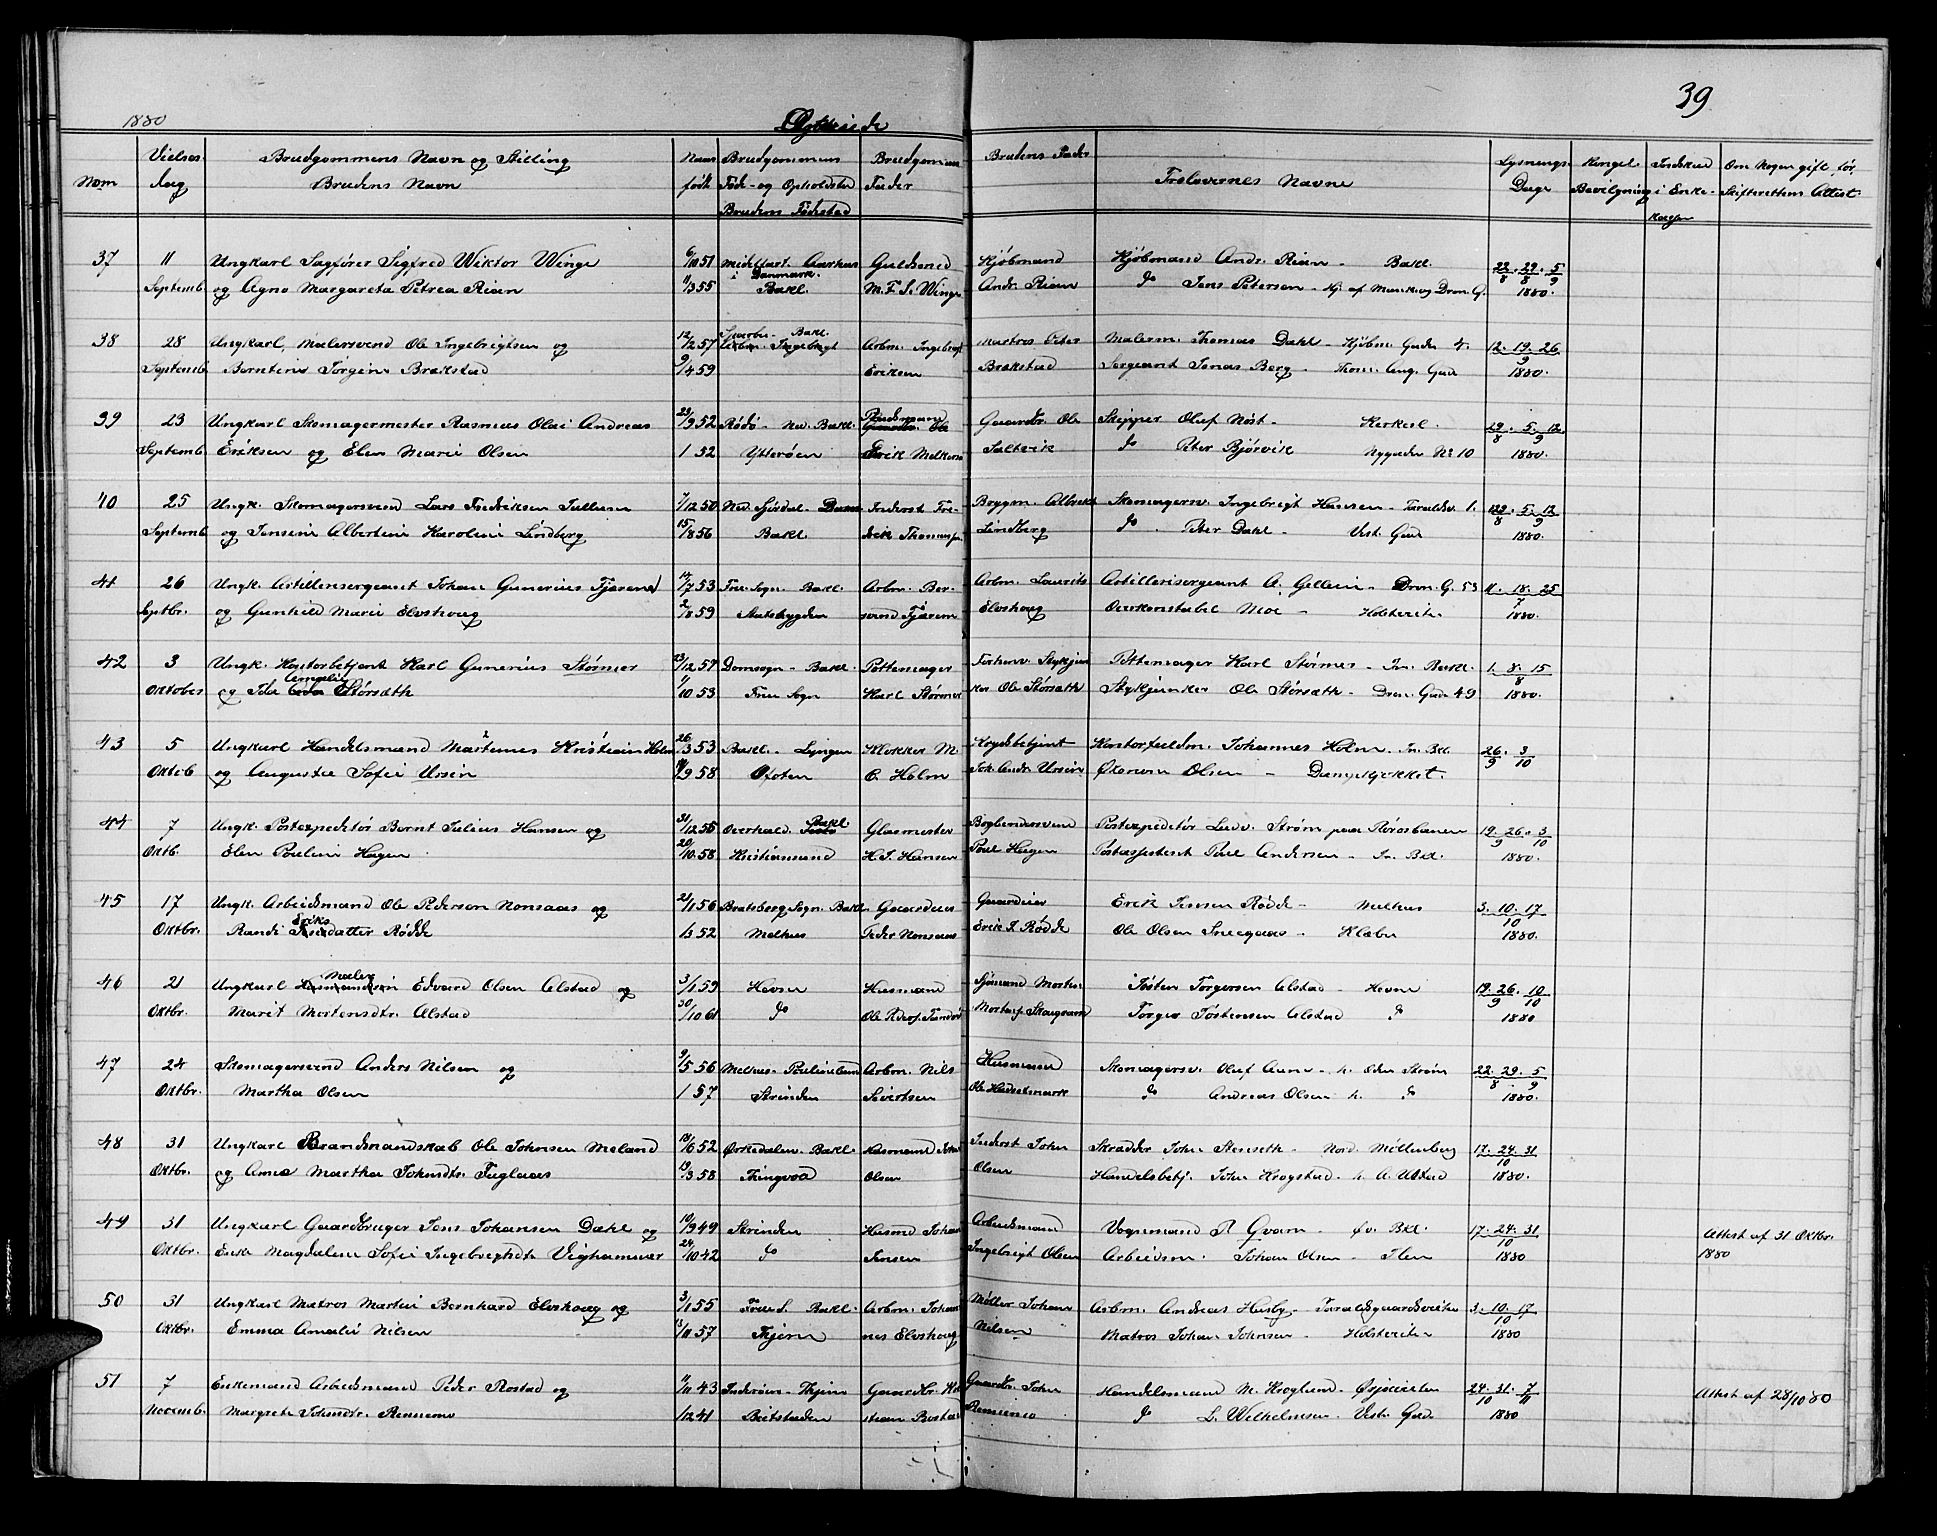 39
1880 Ægteviede
Num
Vielses dag
Brudgommens Navn og Stilling
Brudens Navn
Naar født
Brudgommens Føde- og Opholdssted
Brudens Fødested
Brudgommens Fader
Brudens Fader
Trolovernes Navne
Lysnings Dage
Kongel. Bevilgning
Indskud i Enkekassen
Om nogen gift før, Skifterettens Attest
37 11 Ungkarl Sagfører Sigfred Wiktor Winge 6/10 51 Middelfart Aarhus Guldsmed Kjøbmand Kjøbmand Andr. Rian - Bakl. 22. 29. 5
Septemb. og Agno Margareta Petrea Rian 11/3 55 i Danmark. Bakl. M. F. S. Winge Andr. Rian do Jens Petersen 8 8 9 1880.
38 28 Ungkarl, Malersvend Ole Ingebrigtsen og 12/2 57 Bakl. Arbm. Ingebrigt Matros Peter Malerm. Thomas Dahl - Kjøbm. Gade 4. 12. 19. 26
Septemb. Berntine Jørgine Brækstad 9/4 59 Eriksen Brækstad Sergeant Jonas Berg - Thom. Ang. Gade 9 1880.
39 23 Ungkarl Skomagermester Rasmus Olai Andreas 23/9 52 Rødø - Ned. Bakl. Gaardbr. Ole Skipper Oluf Nøst - Kirkesl. 29. 5. 12
Septemb. Eriksen og Elen Marie Olsen 1 52 Ytterøen Erik Melkersen Saltvik do Peter Bjørvik Nygaden No 10 8 9 1880.
40 25 Ungk. Skomagersvend Lars Fredriksen Tullusen 7/12 50 Ned. Stjørdal Inderst Fre- Brygm. Albrekt Skomagersv. Ingebrigt Hansen - Taraldsv. 1. 29. 5. 12
Septemb. og Jensine Albertine Karoline Lindberg 15/8 56 Bakl. drik Thomassen Lindberg do Peter Dahl - Vest. Gade 8 9 1880.
41 26 Ungk. Artillerisergeant Johan Gunerius Fjærem 14/7 53 Frue Sogn - Bakl. Arbm. Ber- Arbm. Laurits Artillerisergeant A. Gellein - Dron. G. 53 11. 18. 25
Septbr. og Gunhild Marie Elvshoug 2/8 59 Stadsbygden nard Fjærem Elvshoug Overkonstabel Moe - Holstveiten 7 1880.
42 3 Ungk. Kontorbetjent Karl Gunerius Størmer 23/12 57 Domsogn - Bakl. Pottemager Forhenv. Stykjun Pottemager Karl Størmer - In. Bakl. 1. 8. 15
Oktober og Ida Amalie Størsæth 1/10 53 Frue Sogn Karl Størmer ker Ole Størsæth Stykjunker Ole Størsæth - Dron. Gade 49 8 1880.
43 5 Ungkarl Handelsmand Martinus Kristian Holm 26/3 53 Bakl. - Lyngen Klokker M. Krydsbetjent Kontorfuldm. Johannes Holm - In. Bkl. 26. 3
Oktob og Augusta Sofie Ursin /9 58 Ofoten C. Holm Joh. Andr. Ursin Økonom Olsen - 9 10
44 7 Ungk. Postexpeditør Bernt Julius Hansen og 31/12 55 Overhald. Bakl Glasmester Bogbindersvend Postexpeditør Ludv. Strøm paa Rørosbanen 19. 26. 3
Oktb. Elen Pauline Hagen 20/10 58 Kristiansund H. J. Hansen Poul Hagen Postassistent Paul Andersen - In. Bkl. 9 10 1880.
45 17 Ungk. Arbeidsmand Ole Pedersen Nonsaas og 21/1 56 Bratsberg Sogn. Bakl. Gaardeier Gaardeier Erik Jensen Rødde - Melhus 3. 10. 17
Oktbr. Randi Eriksdatter Rødde 1/5 52 Melhus Peder Nonsaas Erik J. Rødde Ole Olsen Sneegaas - Klæbu 10 1880.
46 21 Ungkarl Maler Edvard Olsen Alstad og 3/1 59 Hevne Husmand Sjømand Morten Tøsten Torgersen Alstad - Hevne 19. 26. 10
Oktbr. Marit Mortensdtr. Alstad 30/10 61 do Mortens. Torger Tøstensen Alstad do 9 10 1880
47 24 Skomagersvend Anders Nilsen og 9/5 56 Melhus - Arbm. Nils Husmand Skomagersv. Oluf Aune - h. Eden Strøm 22. 29. 5
Oktbr. Martha Olsen 1 57 Strinden Sivertsen Ole do Andreas Olsen h. do 8. 9 1880.
48 31 Ungkarl Brandmandskab Ole Johnsen Meland 18/6 52 Orkedalen - Bakl. Husmand John Inderst John Skrædder John Stenseth - Nord. Møllenberg 17. 24. 31
Oktbr. og Ane Martha Johnsdtr. Fuglaas 19/3 58 Thingvold Olsen Olsen Handelsbetj. John Krogstad - h. A. Ustad 10 1880.
49 31 Ungkarl Gaardbruger Jens Johansen Dahl og 10/9 49 Strinden Husmd Johan Arbeidsmand Vognmand P. Gvarn - Øv. Bkl. 17. 24. 31 Attest af 31 Oktbr.
Oktbr. Enke Magdalene Sofie Ingebregtsdtr. Vighammer 24/10 42 do Jensen Ingebrigt Olsen Arbeidsm. Johan Olsen - Ilen 10 1880 1880
50 31 Ungkarl Matros Martin Bernhard Elvshoug og 3/1 55 Frue S. Bakl. Arbm. Johan- Møller Johan Arbm. Andreas Husby - Taraldsgaardsveiten 3. 10. 17
Oktbr. Emma Amalie Nilsen 13/11 57 Hjerm nes Elvshoug Nilsen Matros Johan Johnsen - Holstveiten 10 1880
51 7 Enkemand Arbeidsmand Peder Rostad og 11/11 43 Inderøen - Gaardbr. Kri Gaardbr. John Handelsmand M. Kroglund - 24. 31. 7 Attest af 28/10 80
Novemb. Margrete Johnsdtr. Rennemo 1/12 41 Beitstaden stian Rostad Rennemo do L. Wilhelmsen - Vestr. Gade 10 11 1880